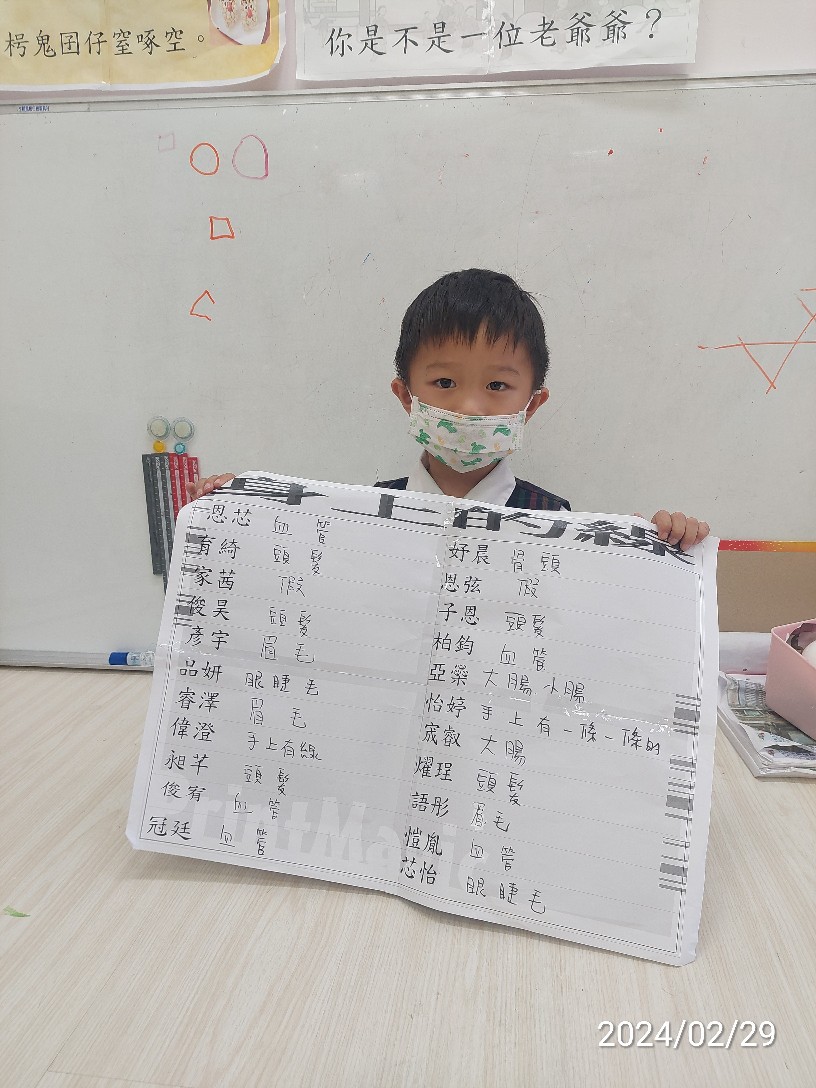 枵鬼囝仔窒啄空。
你是不是一位老爺爺？
身上的線
恩芯 血管
育綺 頭髮
家茜 假
俊昊 頭髮
彥宇 眉毛
品妍 眼睫毛
睿澤 眉毛
偉澄 手上有線
昶芊 頭髮
俊宥 血管
冠廷 血管
妤晨 骨頭
恩弦 假
子恩 頭髮
柏鈞 血管
亞藥 大腸小腸
怡婷 手上有一條一條的
宬叡 大腸
燿珵 頭髮
語彤 眉毛
愷胤 血管
芯怡 眼睫毛
2024/02/29